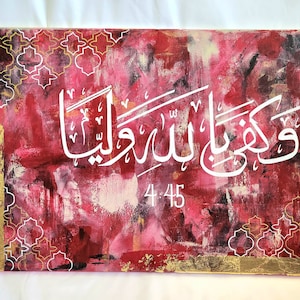 وَكَفَىٰ بِاللَّهِ وَلِيًّا
4-45